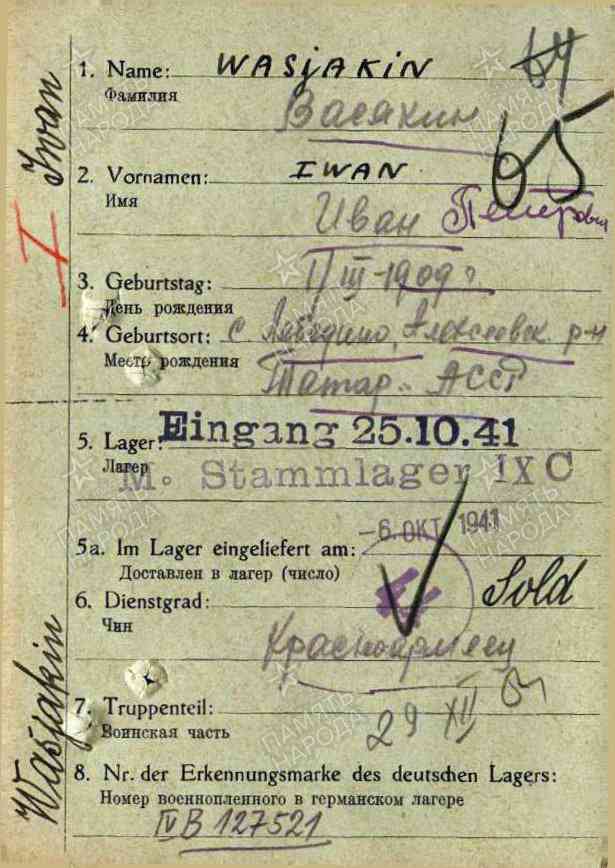 64
1. Name: WASjAKiN
Фамилия
Васякин
65
2. Vornamen: IWAN
Имя
Иван Петрович
3. Geburtstag: 1/III-1909г
День рождения
4. Geburtsort: с Лебедино, Алексеевск. р-н
Место рождения
Татар. АССР
5. Lager: Eingang 25.10.41
Лагерь
M. Stammlager IX C
-6. OKT. 1941
5a. Im Lager eingeliefert am:
Доставлен в лагерь (число)
Sold
6. Dienstgrad:
Чин
Красноармеец
7. Truppenteil:
Воинская часть
29 XII
8. Nr. der Erkennungsmarke des deutschen Lagers:
Номер военнопленного в германском лагере
IV B 127521
I Iwan
Wasjakin
ПАМЯТЬ НАРОДА